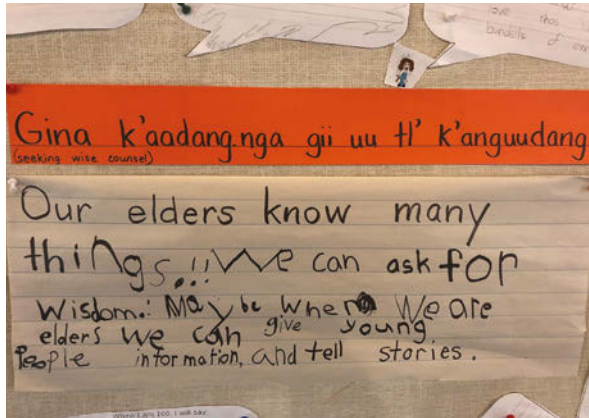 bundels of
Gina k'aadang.nga gii uu tl' k'anguudang
(seeking wise counsel)
Our elders know many
things.!! We can ask for
Wisdom.: Maybe When We are
elders We can give young
People information, and tell stories.
When I am 100, I will say